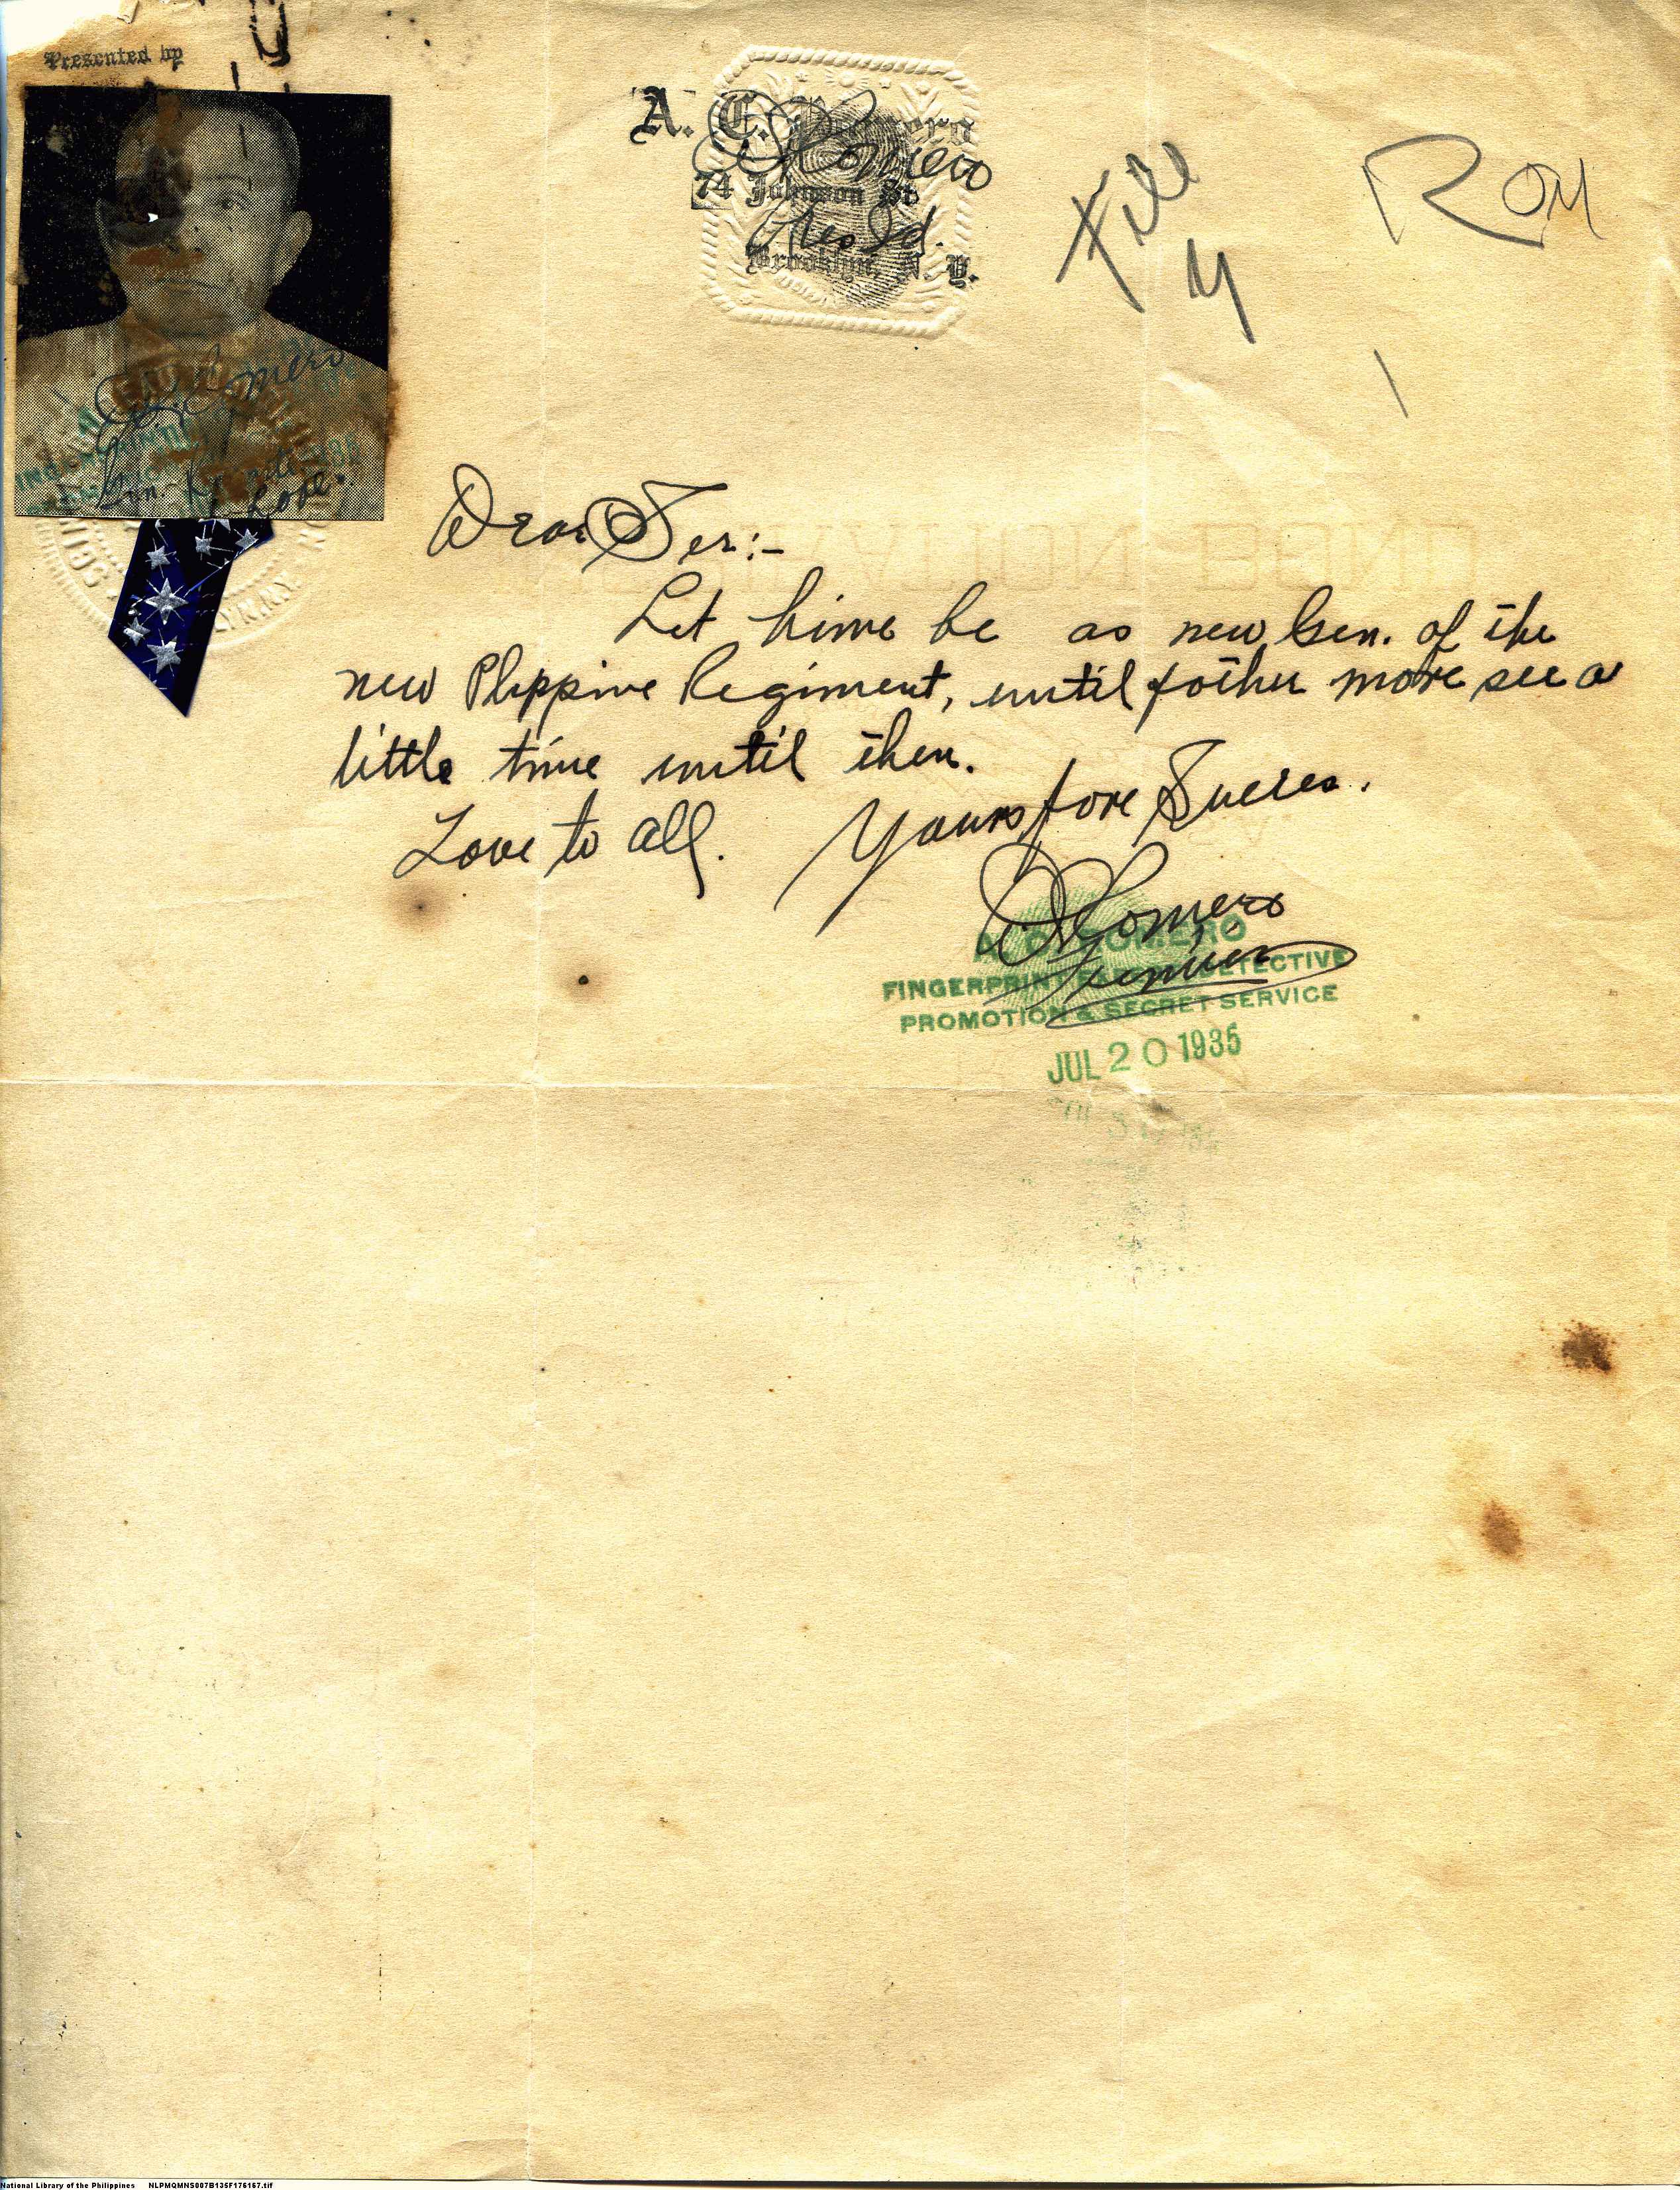 Presented by
A. C. Romero
ACRomero
74 Johnson St
Brooklyn, N. Y.
File
M
ROM
Romero
Love.
Dear Ser:-
Let hime be as new Gen. of the
new Plippine Regiment, until fother more see a
little time until then.
Love to all. Yours fore Sucres.
Romero
A. C. ROMERO
FINGERPRINT DETECTIVE
PROMOTION & SECRET SERVICE
JUL 20 1935
National Library of the Philippines NLPMQMNS007B135F176167.tif